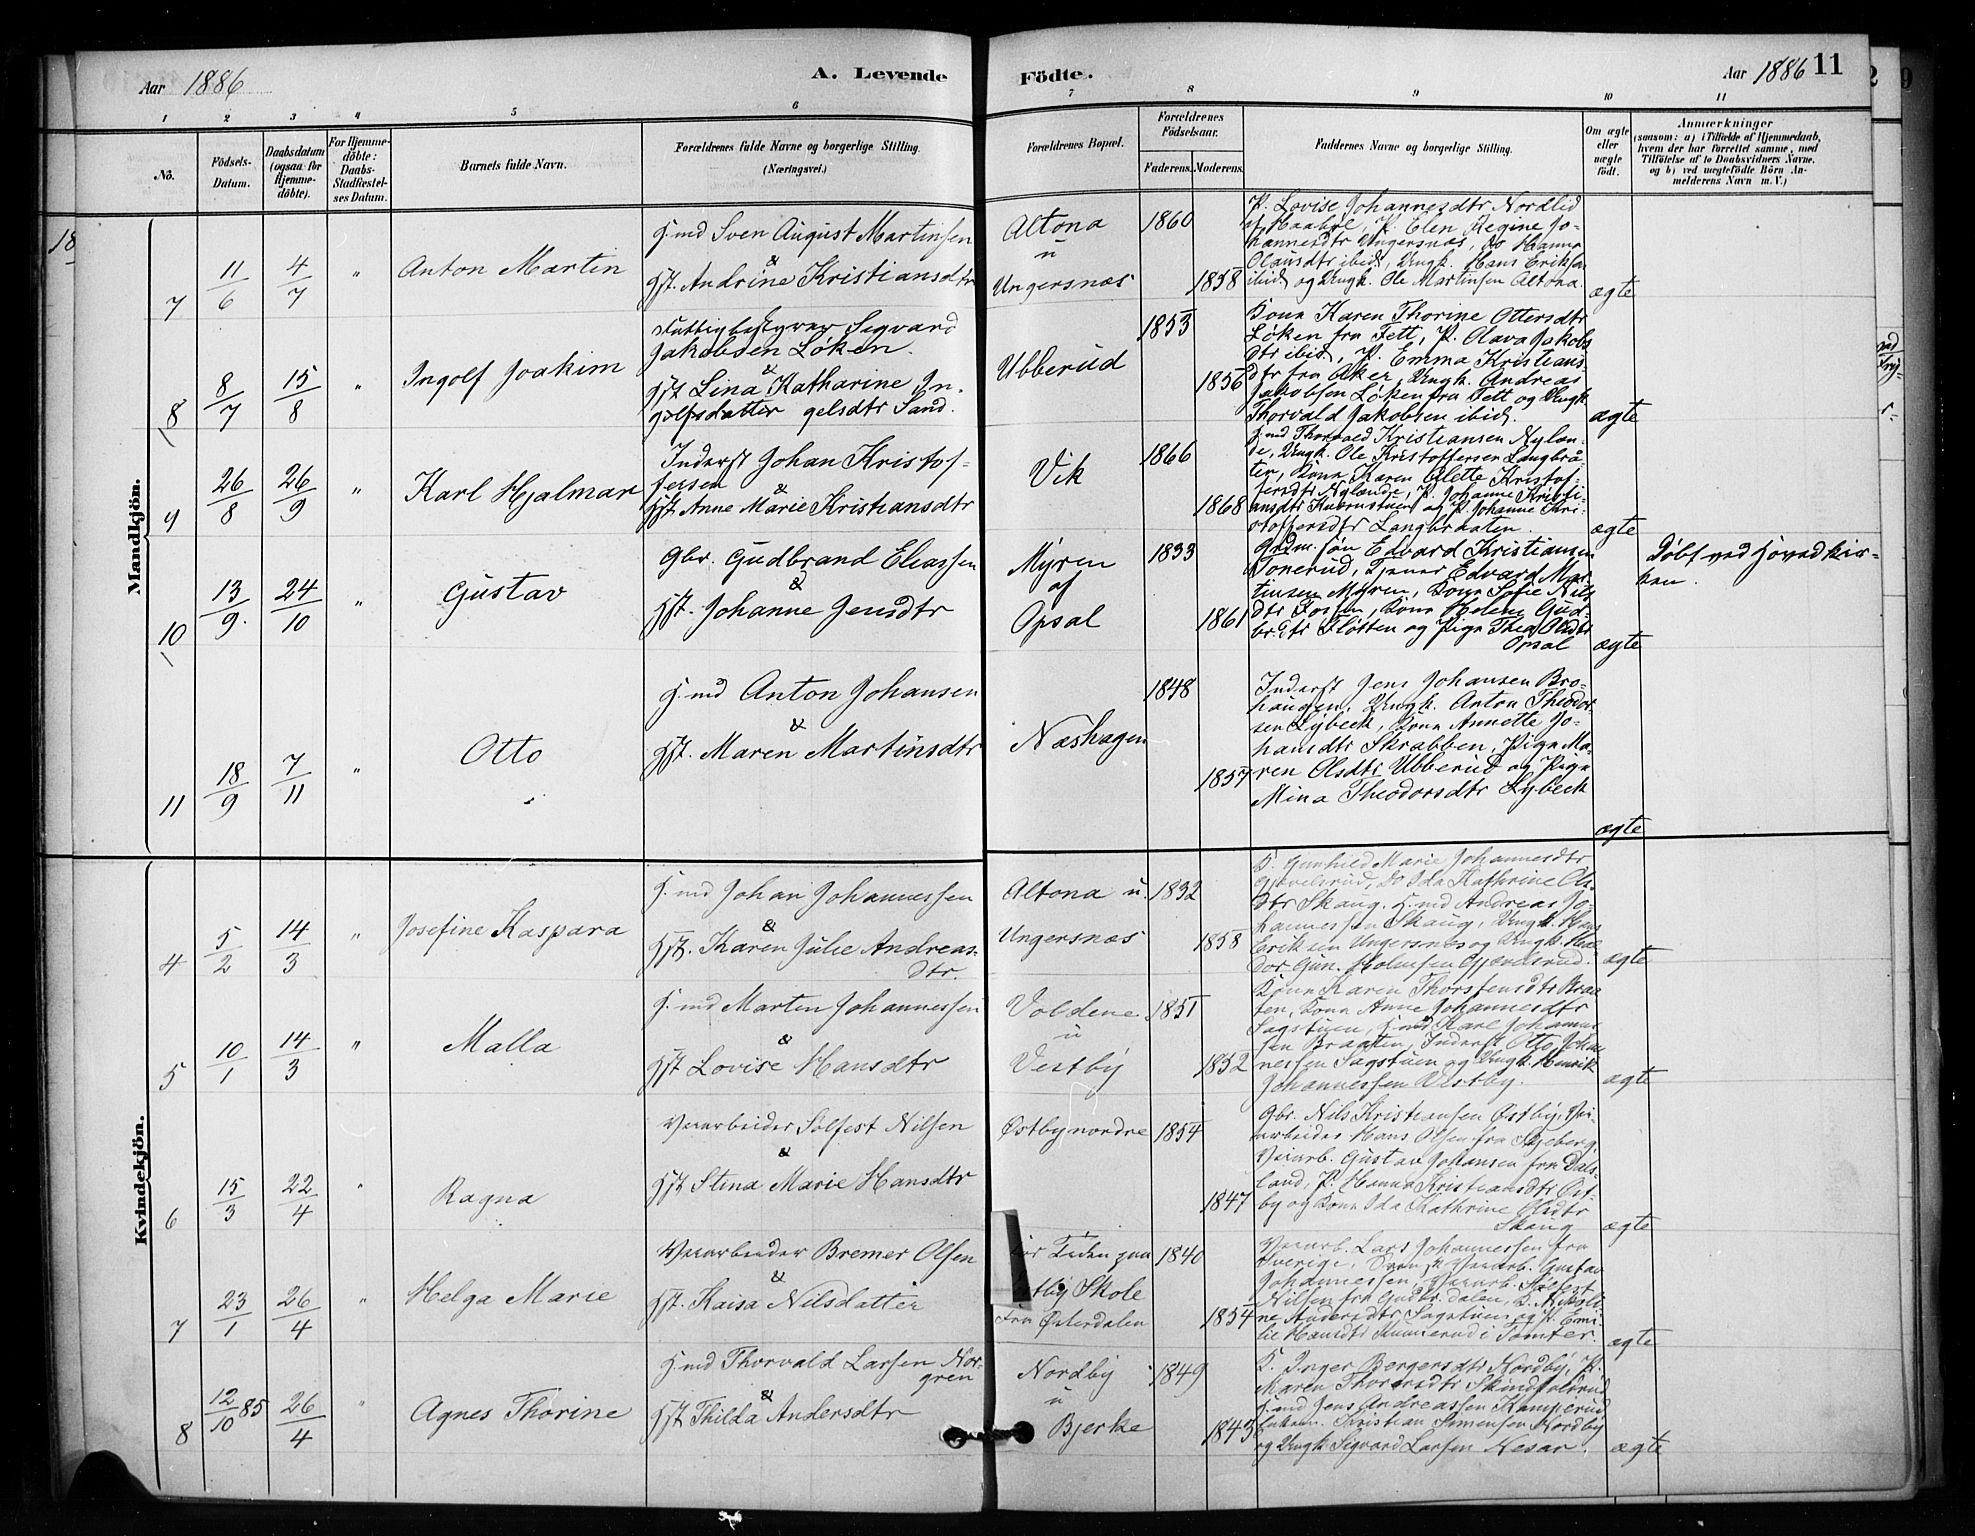 Aar 1886
A. Levende
Födte.
Aar 1886 11
1 2 3 4 5 6 7 8 9 10 11
No.
Födsels-
Datum.
Daabsdatum
(ogsaa for
Hjemme-
döbte).
For Hjemme-
döbte:
Daabs-
Stadfæstel-
ses Datum.
Barnets fulde Navn.
Forældrenes fulde Navne og borgerlige Stilling.
(Næringsvei.)
Forældrenes Bopæl.
Forældrenes
Födselsaar.
Faderens.
Moderens.
Faddernes Navne og borgerlige Stilling.
Om ægte
eller
uægte
födt.
Anmærkninger
(saasom: a) i Tilfælde af Hjemmedaab,
hvem der har forrettet samme, med
Tilföielse af to Daabsvidners Navne,
og b) ved uægtefödte Börn An-
melderens Navn m. V.)
18
Mandkjön.
7
11/6
4/7
"
Anton Martin
H.md Sven August Martinsen
&
Hst. Andrine Kristiansdtr
Altona
u
Ungersnæs
1860
1858
P. Lovise Johannesdtr Nordlid
af Haabøl, P. Elen Regine Jo-
hannesdtr Ungersnæs, do Hanna
Olausdtr ibid, Ungk. Hans Eriksen
ibid og Ungk. Ole Martinsen Altona.
ægte
8
8/7
15/8
"
Ingolf Joakim
Fattigbestyrer Sigvard
Jakobsen Løken.
&
Hst Lina Katharine In-
golfsdatter gelsdtr Sand.
Ubberud
1853
1856
Kona Karen Thorine Ottersdtr
Løken fra Fett, P. Olava Jakobs
dtr ibid, P. Emma Kristians
dtr fra Aker, Ungk. Andreas
Jakobsen Løken fra Fett og Ungk.
Thorvald Jakobsen ibid.
ægte
9
26/8
26/9
"
Karl Hjalmar
Inderst Johan Kristof-
fersen
&
Hst Anne Marie Kristiansdtr
Vik
1866
1868
H.md Thorvald Kristiansen Nylan-
de, Ungk. Ole Kristoffersen Langbrå-
ten, Kona Karen Olette Kristof-
fersdtr Nylande, P. Johanne Kristi-
ansdtr og P. Johanne Kri-
stoffersdtr Langbraaten.
ægte
10
13/9
24/10
"
Gustav
Gbr. Gudbrand Eliassen
&
Hst. Johanne Jensdtr
Myren
af
Opsal
1833
1861
Grdm. søn Edvard Kristiansen
Tonerud, Tjener Edvard Mar-
tinsen Myren, Kona Sofie Nils
dtr Fossen, Kona Helene Gud-
br.dtr Sløtten og Pige Thea Olsdtr
Opsal
ægte
Døbt ved Hovedkir-
ken.
11
18/9
7/11
"
Otto
H.md Anton Johansen
&
Hst. Maren Martinsdtr
Næshagen
1848
1857
Inderst Jens Johansen Bro-
haugen, Ungk. Anton Theodor
sen Lybeck, Kona Annette Jo-
hansdtr Skrabben, Pige Ma-
ren Olsdtr Ubberud og Pige
Mina Theodorsdtr Lybeck
ægte
Kvindekjön.
4
5/2
14/3
"
Josefine Kaspara
H.md Johan Johannessen
&
Hst. Karen Julie Andreas-
dtr.
Altona u.
Ungersnæs
1832
1858
K. Gunhild Marie Johannesdtr
Gjevelsrud, do Ida Kathrine Ols
dtr Skaug. H.md Andreas Jo-
hannessen Skaug, Ungk. Hans
Eriksen Ungersnes og Ungk. Hal-
dor Gun. Holmsen Gjevelsrud.
ægte
5
10/1
14/3
"
Malla
H.md Marten Johannessen
&
Hst Lovise Hansdtr
Voldene
u
Vestby
1851
1852
Kona Karen Thorstensdtr Braa
ten, Kona Anne Johannesdtr
Sagstuen, H.md Karl Johannes
sen Braaten, Inderst Otto Johan
nessen Sagstuen og Ungk. Henrik
Johannessen Vestby.
ægte
6
15/3
22/4
"
Ragna
Veiarbeider Solfest Nilsen
&
Hst Stina Marie Hansdtr
Østby nordre
1854
1847
Gbr. Nils Kristiansen Østby, Vei
arbeider Hans Olsen fra Skjeberg,
Veiarb. Gustav Johansen fra Dals-
land, P. Hanna Kristiansdtr Øst-
by og Kona Ida Kathrine Olsdtr
Skaug
ægte
7
23/1
26/4
"
Helga Marie
Veiarbeider Bremer Olsen
&
Hst. Kaisa Nilsdatter
For Tiden paa
Østby Skole
fra Østerdalen
1840
1854
Veiarb. Lars Johannessen fra
Sverige, Veiarb. Gustav
Johannessen, Veiarb. Solfest
Nilsen fra Gudbr.dalen, K. Kristi-
ne Andersdtr Sagstuen og P. Emi-
lie Hansdtr Kunnerud i Tomter.
ægte
8
12/10 85
26/4
"
Agnes Thorine
H.md Thorvald Larsen Nor-
gren
&
Hst Thilda Andersdtr
Nordby
u
Bjerke
1849
1843
K. Inger Bergersdtr Nordby, P.
Maren Thorersdtr Skindholdrud
H.md Jens Andreassen Kamperud
Kristian Simensen Nordby
og Ungk. Sigvard Larsen Nesar.
ægte